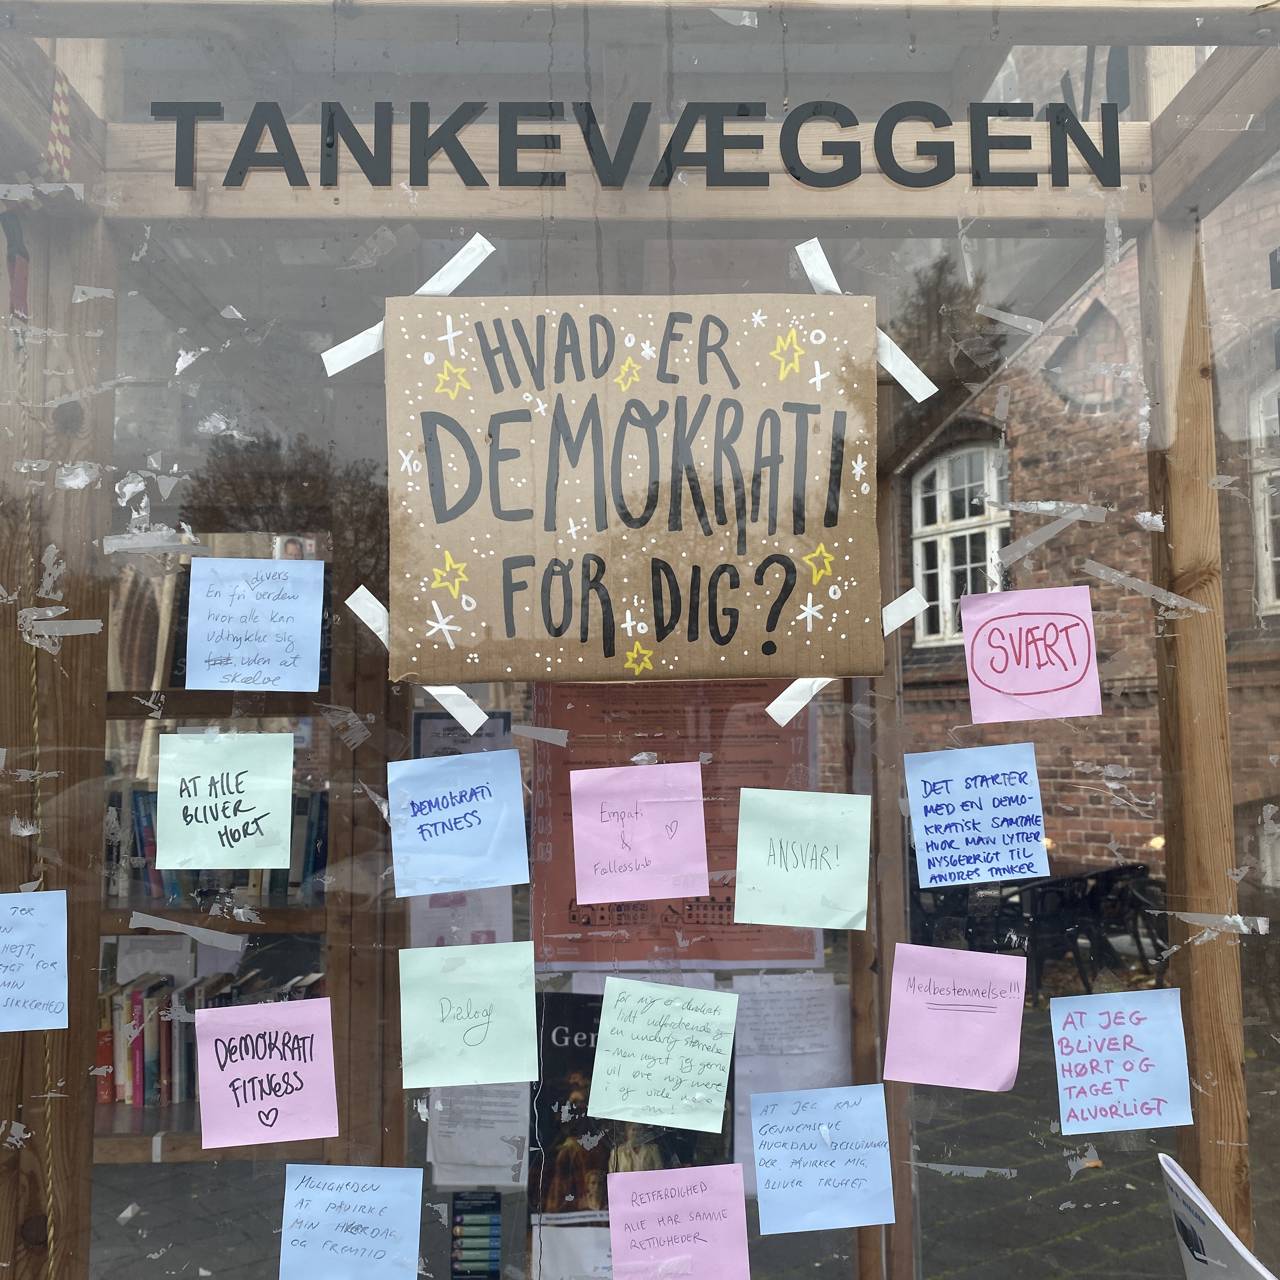 TANKEVÆGGEN
HVAD ER
DEMOKRATI
FOR DIG?
divers
En fri verden
hvor alle kan
udtrykke sig
uden at
skælve
SVÆRT
AT ALLE
BLIVER
HØRT
DEMOKRATI
FITNESS
Empati
&
Fællesskab
ANSVAR!
DET STARTER
MED EN DEMO-
KRATISK SAMTALE
HVOR MAN LYTTER
NYSGERRIGT TIL
ANDRES TANKER
HØJT,
FOR
MIN
SIKKERHED
DEMOKRATI
FITNESS
Dialog
For mig er demokrati
lidt udfordrende og
en underlig størrelse
-Men noget jeg gerne
vil øve mig mere
i og vide mere
om!
Medbestemmelse!!!
AT JEG
BLIVER
HØRT OG
TAGET
ALVORLIGT
AT JEG KAN
GENNEMSKUE
HVORDAN BESLUTNINGER,
DER PÅVIRKER MIG,
BLIVER TRUFFET
MULIGHEDEN
AT PÅVIRKE
MIN HVERDAG
OG FREMTID
RETFÆRDIGHED
ALLE HAR SAMME
RETTIGHEDER
Ger